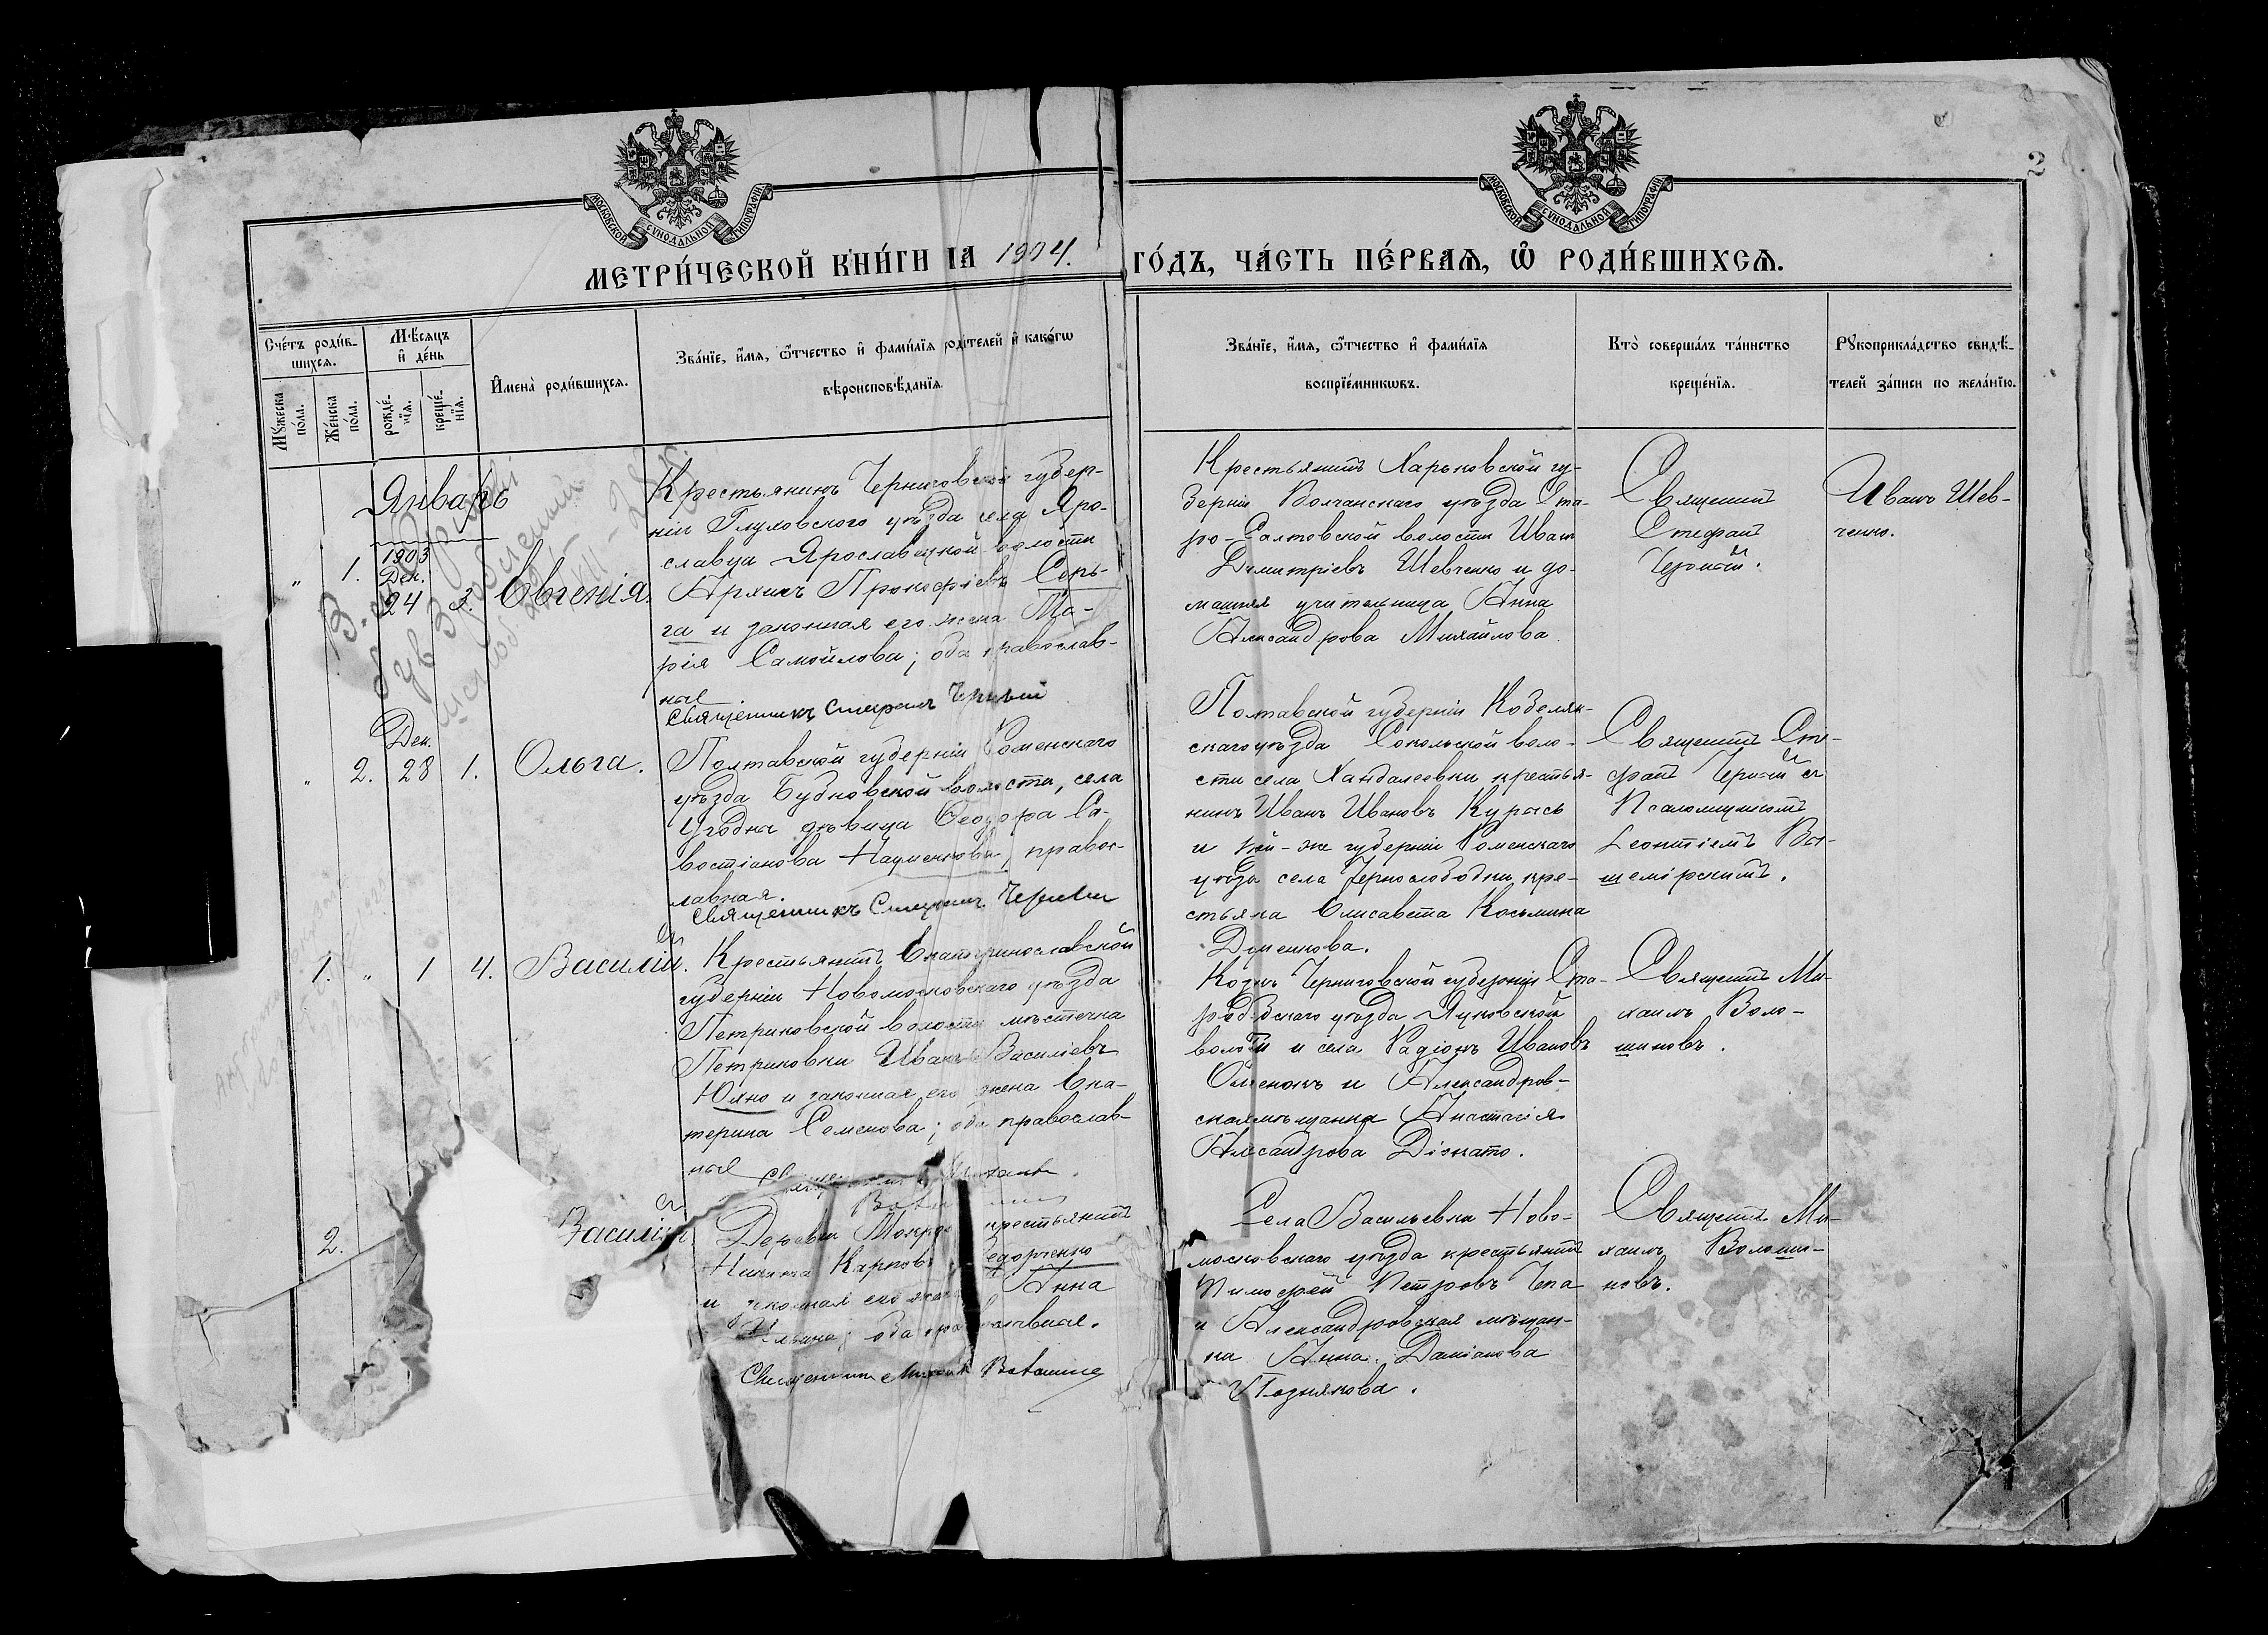 МОСКОВСКОЙ СѴНОДАЛЬНОЙ ТИПОГРАФІИ
МОСКОВСКОЙ СѴНОДАЛЬНОЙ ТИПОГРАФІИ
2
МЕТРИ́ЧЕСКОЙ КНИ́ГИ НА 1904. ГО́ДЪ, ЧА́СТЬ ПЕ́РВАѦ, Ѡ҆ РОДИ́ВШИХСѦ.
Сче́тъ роди́в-
шихсѧ.
Мꙋ́жеска по́ла.
Же́нска по́ла.
Мѣ́сѧцъ
и҆ де́нь
рожде́-нїѧ.
креще́-нїѧ.
И҆мена̀ роди́вшихсѧ.
Зва́нїе, и҆́мѧ, ѻ҆́тчество и҆ фами́лїѧ роди́телей и҆ како́гѡ
вѣроисповѣ́данїѧ.
Зва́нїе, и҆́мѧ, ѻ҆́тчество и҆ фами́лїѧ
воспрїе́мникѡвъ.
Кто̀ соверша́лъ та́инство
креще́нїѧ.
Рꙋкоприкла́дство свидѣ́-
телей за́писи по жела́нїю.
Январь
" 1. 1903 Дек. 24 3. Евгенія.
Крестьянинъ Черниговской губер-
ніи Глуховского уѣзда села Яро-
славца Ярославецкой волости
Архипъ Прокофіевъ Серь-
га и законная его жена Ма-
рія Самойлова; оба православ-
ные.
Священникъ Стефанъ Черный
Крестьянинъ Харьковской гу-
берніи Волчанскаго уѣзда Ста-
ро-Салтовской волости Иванъ
Димитріевъ Шевченко и до-
машняя учительница Анна
Александрова Михайлова.
Священникъ
Стефанъ
Черный.
Иванъ Шев-
ченко.
" 2. Дек. 28 1. Ольга.
Полтавской губерніи Роменскаго
уѣзда Бубновской волости, села
дѣвица Ѳеодора Са-
востіанова Науменкова, правос-
лавная.
Священникъ Стефанъ Черный
Полтавской губерніи Кобеляк-
скаго уѣзда Сокольской воло-
сти села Хандалеевки крестья-
нинъ Иванъ Ивановъ Курась
и той-же губерніи Роменскаго
уѣзда села Чернослободки кре-
стьянка Елисавета Косьмина
Священникъ Сте-
фанъ Черный съ
Псаломщикомъ
Леонтіемъ
1. " 1 4. Василій.
Крестьянинъ Екатеринославской
губерніи Новомосковскаго уѣзда
Петриковской волости мѣстечка
Петриковки Иванъ Василіевъ
Юхно и законная его жена Ека-
терина Семенова; оба православ-
ные
Козакъ Черниговской губерніи Ста-
родубскаго уѣзда
волости и села Радіонъ Ивановъ
и Александров-
ская мѣщанка Анастасія
Александрова
Священникъ Ми-
хаилъ Воло-
шиновъ.
2. Василій
Деревни крестьянинъ
Никита Карповъ
и законная его жена Анна
Ильина; оба православные.
Священникъ Михаилъ Волошинов
Села Васильевки Ново-
московскаго уѣзда крестьянинъ
Тимофей Петровъ Чепа
и Александровская мѣщан-
ка Анна Даміанова
Позднякова.
Священникъ Ми-
хаилъ Волоши-
новъ.